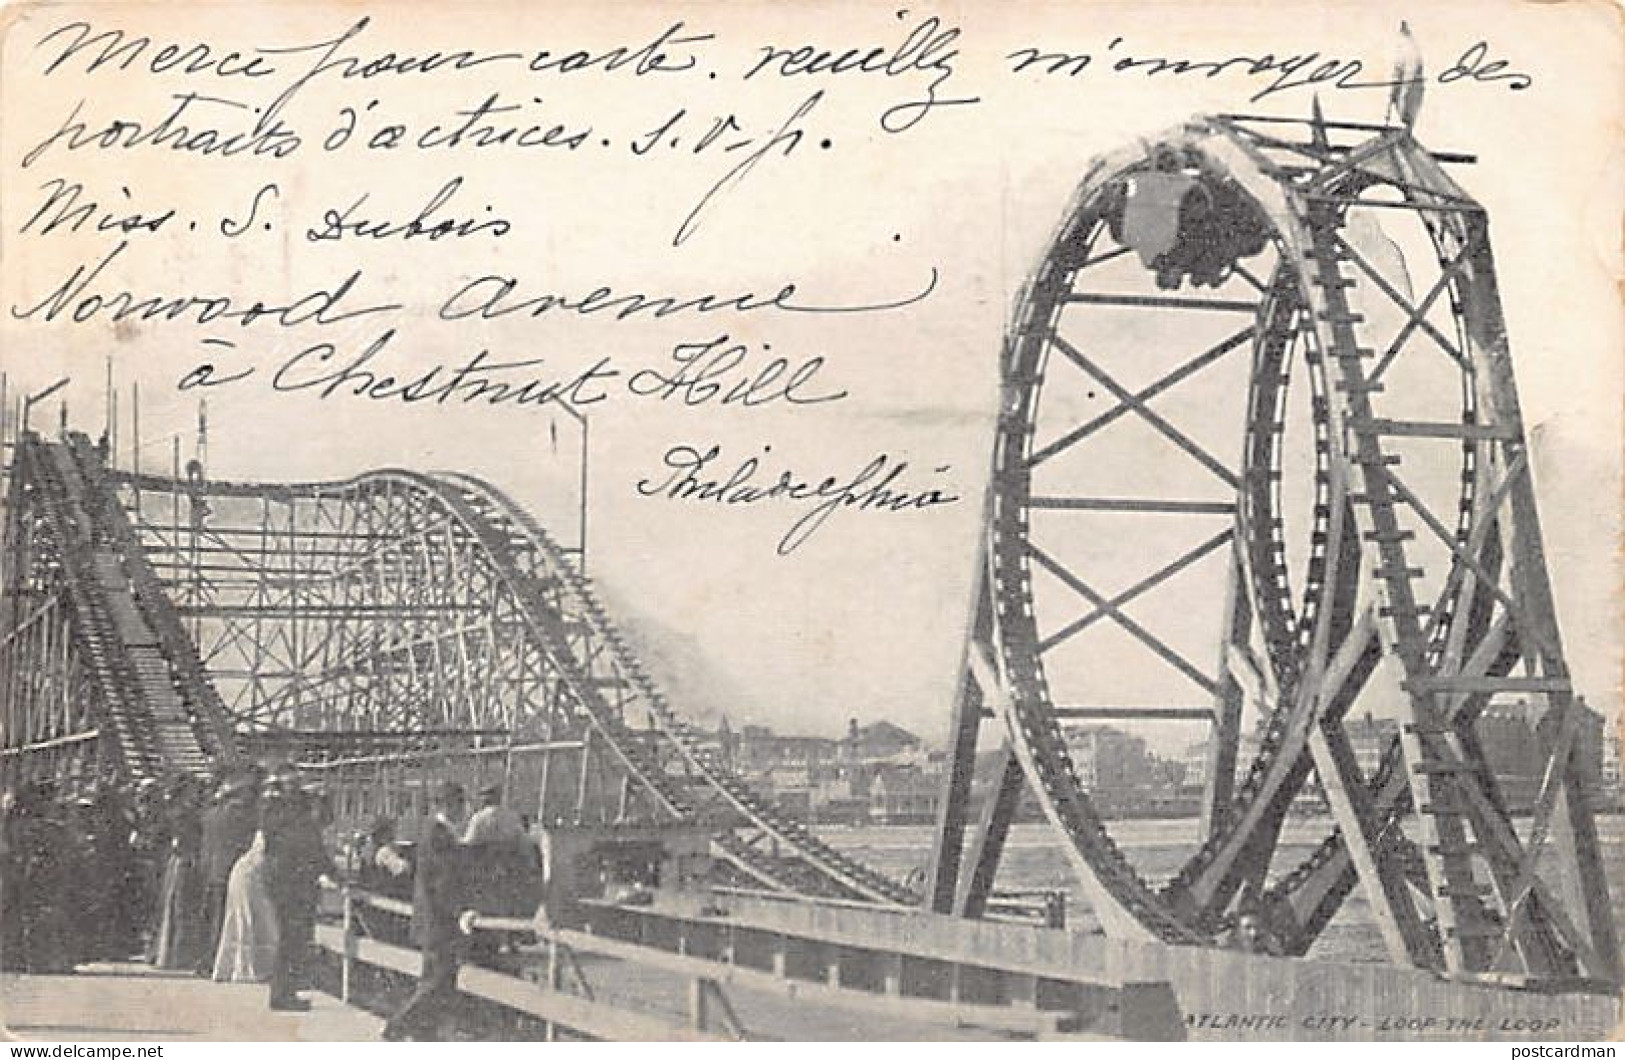 Merci pour carte. veuillez m'envoyer des
portraits d'actrices. S. V. p.
Miss. S. Dubois
Norwood Avenue
à Chestnut Hill
Philadelphia
ATLANTIC CITY - LOOP THE LOOP
delcampe.net
postcardman